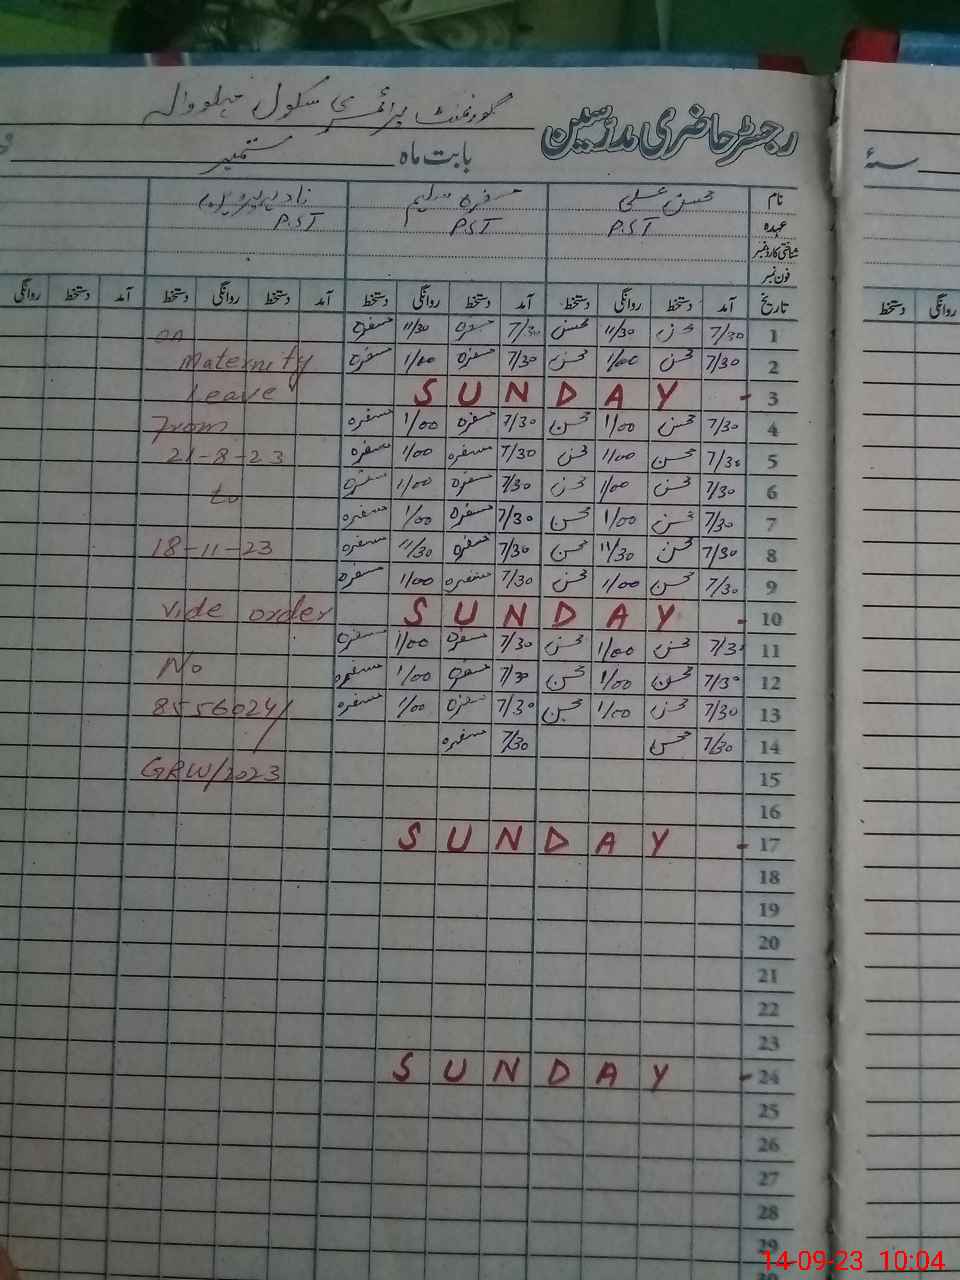 گورنمنٹ پرائمری سکول
رجسٹر حاضری مدرسین
بابت ماہ ستمبر
سنۂ
نام محسن علی سفرہ سلیم
عہدہ P.S.T P.S.T P.S.T
شناختی کارڈ نمبر
فون نمبر
تاریخ آمد دستخط روانگی دستخط آمد دستخط روانگی دستخط آمد دستخط روانگی دستخط آمد دستخط روانگی
روانگی دستخط
1 7/30 محسن 11/30 محسن 7/30 سفرہ 11/30 سفرہ on
2 7/30 محسن 1/00 محسن 7/30 سفرہ 1/00 سفرہ Maternity
3 - SUNDAY Leave
4 7/30 محسن 1/00 محسن 7/30 سفرہ 1/00 سفرہ From
5 7/30 محسن 1/00 محسن 7/30 سفرہ 1/00 سفرہ 21-8-23
6 7/30 محسن 1/00 محسن 7/30 سفرہ 1/00 سفرہ to
7 7/30 محسن 1/00 محسن 7/30 سفرہ 1/00 سفرہ
8 7/30 محسن 11/30 محسن 7/30 سفرہ 11/30 سفرہ 18-11-23
9 7/30 محسن 1/00 محسن 7/30 سفرہ 1/00 سفرہ
10 - SUNDAY vide order
11 7/30 محسن 1/00 محسن 7/30 سفرہ 1/00 سفرہ
12 7/30 محسن 1/00 محسن 7/30 سفرہ 1/00 سفرہ No
13 7/30 محسن 1/00 محسن 7/30 سفرہ 1/00 سفرہ 8556024/
14 7/30 محسن 7/30 سفرہ
15 GRW/2023
16
17 - SUNDAY
18
19
20
21
22
23
24 - SUNDAY
25
26
27
28
29
14-09-23 10:04